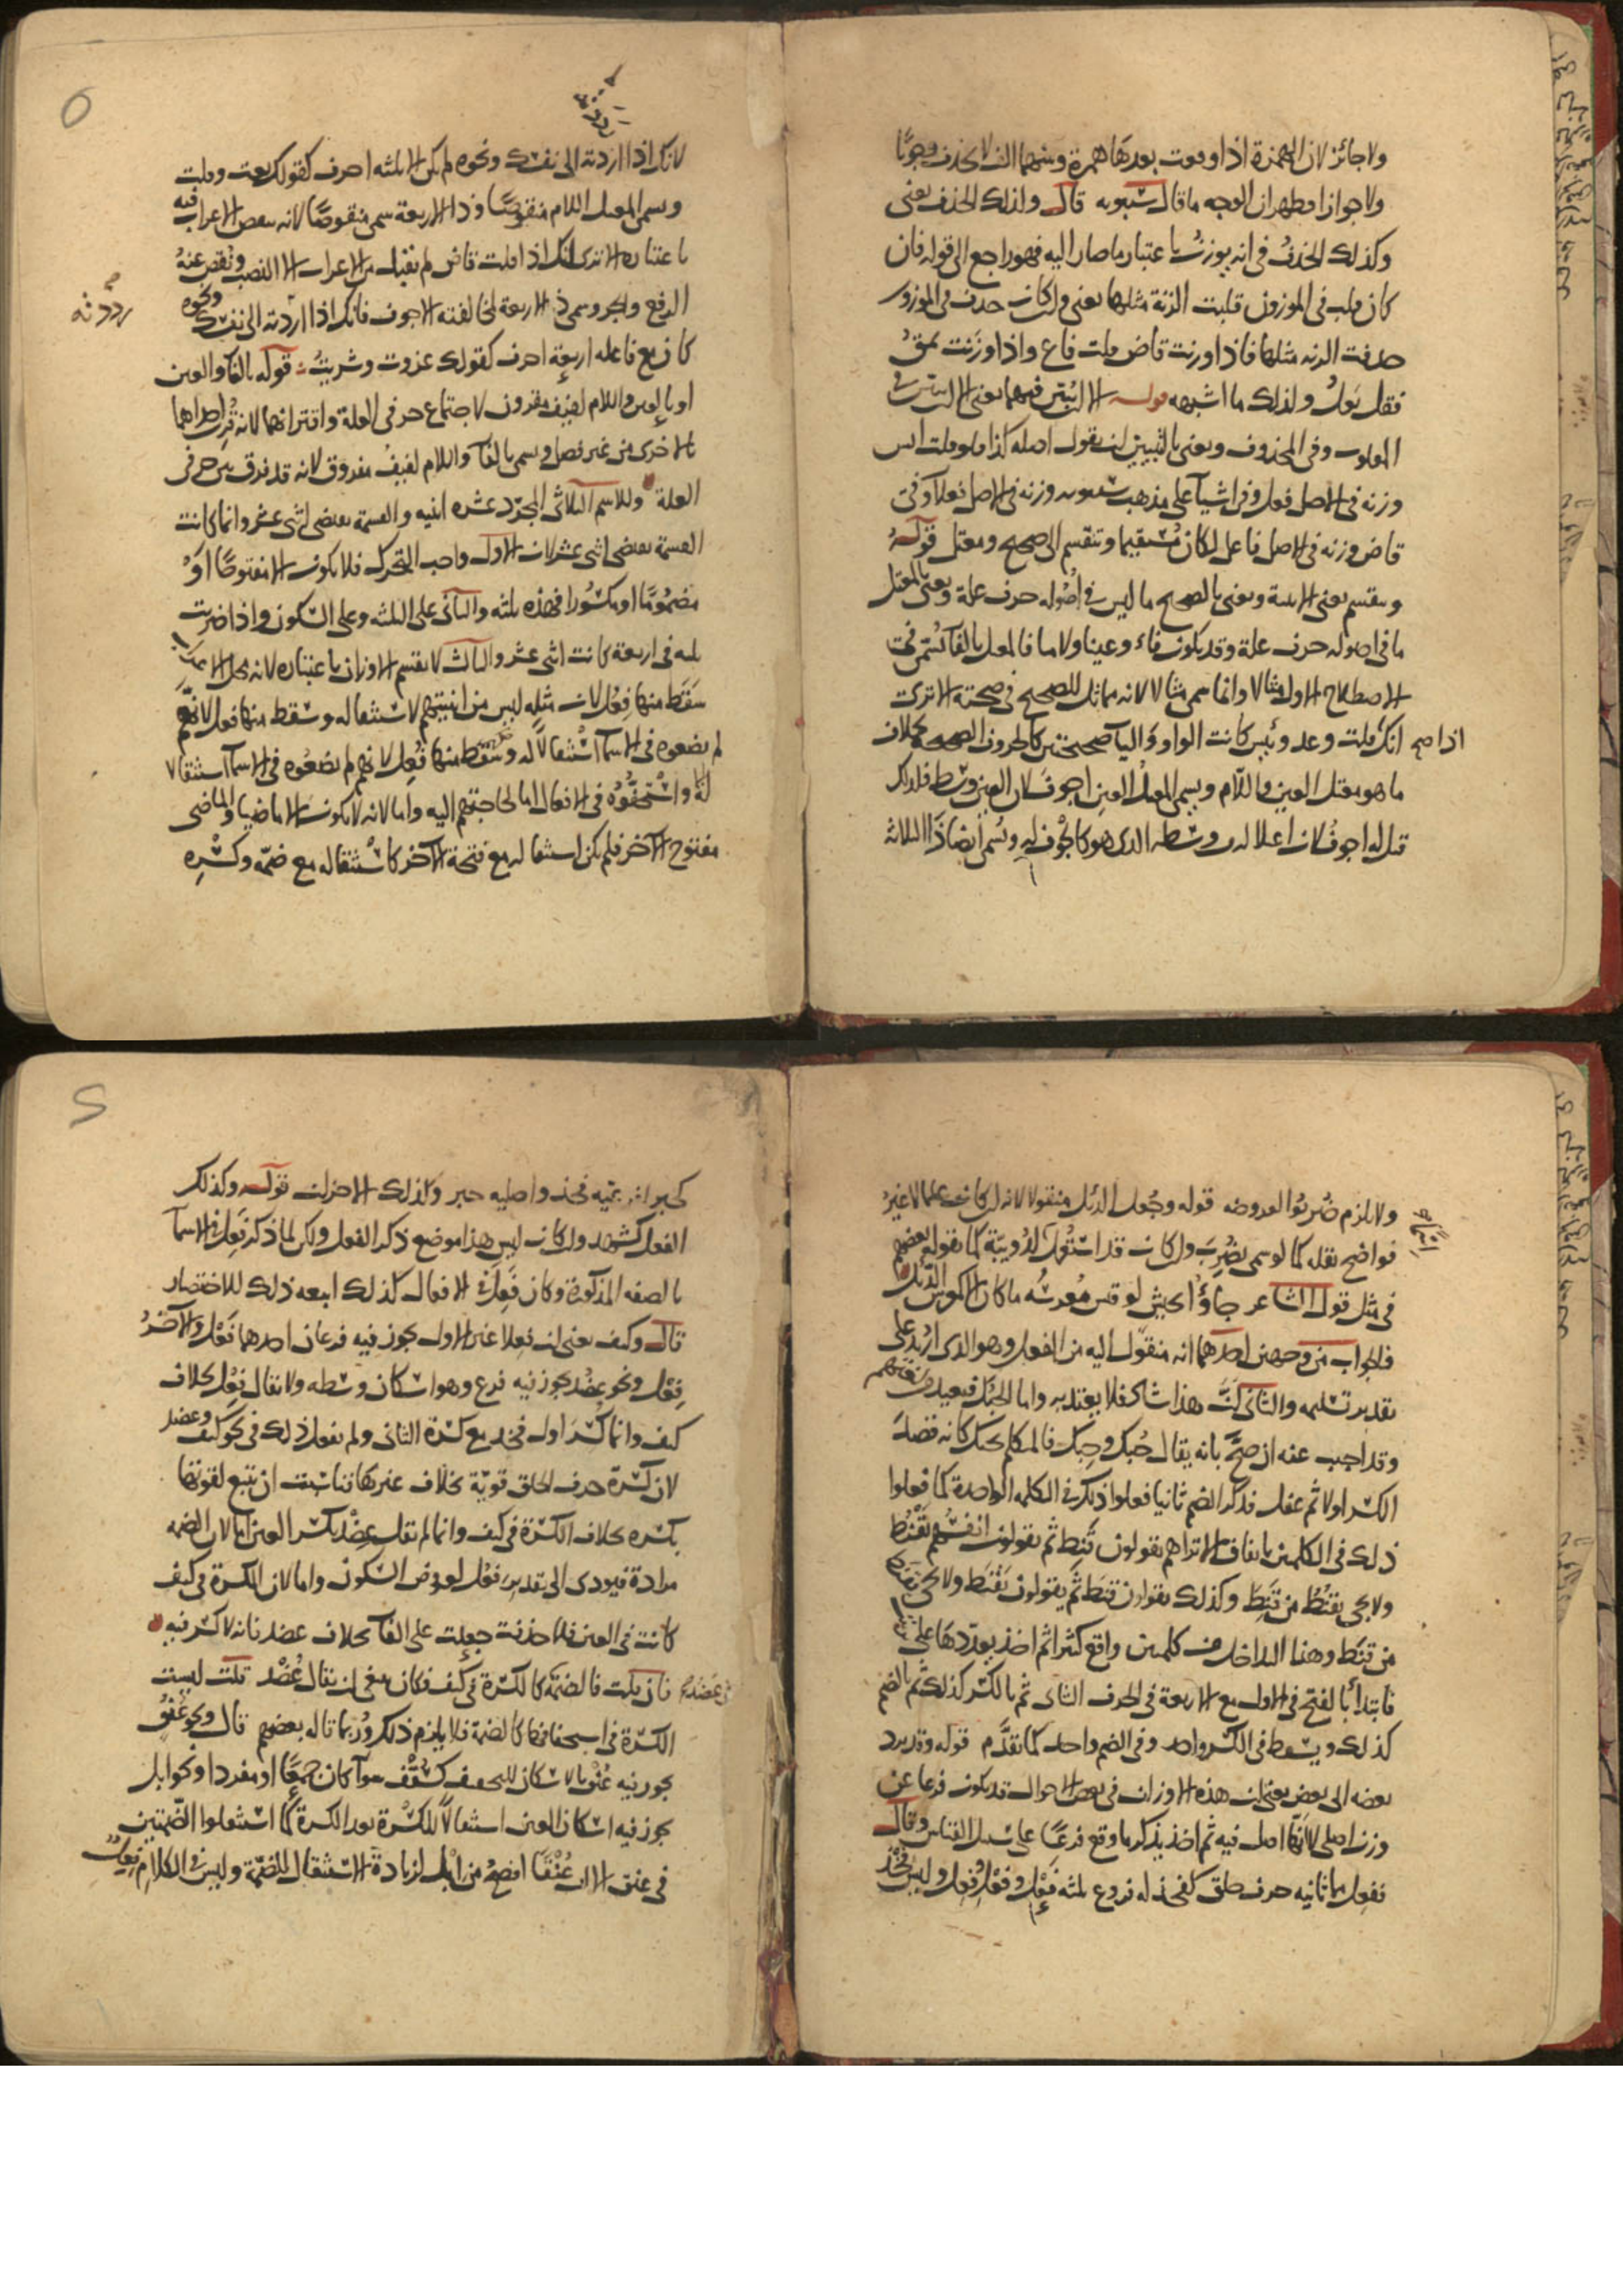 ولا جائز لان الهمزة اذا وقعت بعدها همزة وبينهما الف لا تحذف وجوبا
ولا جوازا فظهر ان الوجه ما قال سيبويه قال وكذلك الحذف يعنى
وكذلك الحذف فى انه يوزن باعتبار ما صار اليه فهو راجع الى قوله فان
كان قلب فى الموزون قلبت الزنة مثلها يعنى وان كان حذف فى الموزون
حذفت الزنه مثلها فاذا وزنت قاض قلت فاع واذا وزنت
فقل يعل وكذلك ما اشبهه قوله الا ان يبين فيهما يعنى الا ان يبين فى
المقلوب وفى المحذوف ويعنى بالتبيين ان يقول اصله كذا فلو قلت ايس
وزنه فى الاصل فعل وفى اشيآ على مذهب سيبويه وزنه فى الاصل فعلآ وفى
قاض وزنه فى الاصل فاعل لكان مستقيما وتنقسم الى صحيح ومعتل قوله
وينقسم يعنى الابنية ويعنى بالصحيح ما ليس فى اصوله حرف علة ويعنى بالمعتل
ما فى اصوله حرف علة وقد يكون فاء وعينا ولاما فالمعتل بالفآ يسمى فى
الاصطلاح الاول مثالا وانما سمى مثالا لانه مماثل للصحيح فى صحته الا ترى
اذا صح انك قلت وعد ويئس كانت الواو واليآ صحيحتين كالحروف الصحيحة بخلاف
ما هو معتل العين واللام ويسمى المعتل العين اجوف لان العين وسط فلذلك
قيل له اجوف لان اعلاله فى وسطه الذى هو كالجوف له ويسمى ايضا ذا الثلاثة
لانك اذا رددته الى نفسك ونحوه لم يكن الا ثلثه احرف كقولك بعت وقلت
وسمى المعتل اللام منقوصا وذا الاربعة سمى منقوصا لانه نقص الاعراب فيه
باعتباره الا ترى انك اذا قلت قاض لم تقبل من الاعراب الا النصب ونقص عنه
الرفع والجر وسمى ذا الاربعة لمخالفته الاجوف فانك اذا رددته الى نفسك ونحوه
رددته
كان مع فاعله اربعة احرف كقولك غزوت وشريت قوله بالفآ والعين
او بالعين واللام لفيف مقرون لاجتماع حرفى العلة واقترانهما لانه قرن احداهما
بالاخرى من غير فصل وسمى بالفآ واللام لفيف مفروق لانه قد فرق بين حرفى
العلة وللاسم الثلاثى المجرد عشره ابنيه والقسمة تقتضى اثنى عشر وانما كانت
القسمة تقتضى اثنى عشر لان الاول واجب التحرك فلا يكون الا مفتوحا او
مضموما او مكسورا فهذه ثلثه والثانى على الثلثه وعلى السكون واذا ضربت
ثلثه فى اربعة كانت اثنى عشر والثالث لا يقسم الاوزان باعتباره لانه محل الاعراب
سقط منها فعل لان مثله ليس من ابنيتهم لاستثقاله وسقط منها فعل لانهم
لم يضعوه فى الاسمآ استثقالا له وسقط منها فعل لانهم لم يضعوه فى الاسمآ استثقالا
له واستخفوه فى الافعال اما لحاجتهم اليه واما لانه لا يكون الا ماضيا والماضى
مفتوح الآخر فلم يكن استثقاله مع فتحة الآخر كاستثقاله مع ضمه وكسره
ولا يلزم ضربوا لعروضه قوله وجعل الدئل منقولا لانه ان كان علما لا غير
فواضح نقله كما لو سمى بضرب وان كان قد استعمل لدويبة كما يقوله بعضهم
فى مثل قول الشاعر جاؤا بجيش لو قيس معرسه ما كان الا كمعرس الدئل
فالجواب من وجهين احدهما انه منقول اليه من الفعل وهو الذى اريد على
تقدير تسليمه والثانى ان هذا شاذ فلا يعتد به واما الحبك فبعيد من لغتهم
وقد اجيب عنه ان صح بانه يقال حبك وحبك فالمتكلم بحبك كانه قصد
الكسر اولا ثم غفل فذكر الضم ثانيا فعلوا ذلك فى الكلمه الواحدة كما فعلوا
ذلك فى الكلمتين باتفاق الا تراهم يقولون قنط ثم يقولون انفسهم يقنط
ولا يجى يقنط من قنط وكذلك يقولون قنط ثم يقولون يقنط ولا يجى يقنط
من قنط وهذا التداخل من كلمتين واقع كثيرا ثم اخذ يعددها على
فابتدأ بالفتح فى الاول مع الاربعة فى الحرف الثانى ثم بالكسر كذلك ثم بالضم
كذلك ويسقط فى الكسر واحد وفى الضم واحد كما تقدم قوله وقد يرد
بعضه الى بعض يعنى ان هذه الاوزان فى بعض الاحوال قد يكون فرعا عن
وزن اصلى لا انها اصل فيه ثم اخذ يذكر ما وقع فرعا على سبيل القياس وقال
ففعل مما ثانيه حرف حلق كفخذ له فروع ثلثه فعل وفعل وفعل وليس فخذ
كحبر لان تميه فخذ واصليه حبر وكذلك الاخران قوله وكذلك
الفعل كشهد وان كان ليس هذا موضع ذكر الفعل ولكن لما ذكر فعل فى الاسمآ
بالصفه المذكورة وكان فعل فى الافعال كذلك اتبعه ذلك للاختصار
قال وكتف يعنى ان فعلا غير الاول يجوز فيه فرعان احدهما فعل والآخر
فعل ونحو عضد يجوز فيه فرع وهو اسكان وسطه ولا يقال فعل بخلاف
كتف وانما كسر اول فخذ مع كسرة الثانى ولم يفعل ذلك فى نحو كتف وعضد
لان كسرة حرف الحلق قوية بخلاف غيرها فناسبت ان يتبع لقوتها
بكسره بخلاف الكسرة فى كتف وانما لم يقل عضد بكسر العين اما لان الضمه
مرادة فيودى الى تقدير فعل لعروض السكون واما لان الكسرة فى كتف
كانت فى العين فلما حذفت جعلت على الفآ بخلاف عضد فانه لا كسر فيه
فان قلت فالضمة كالكسرة فى كتف فكان ينبغى ان يقال عضد قلت ليست
الكسرة فى استخفافها كالضمة فلا يلزم ذلك وربما قاله بعضهم قال ونحو عنق
يجوز فيه عنق بالاسكان للتخفيف كسقف سوآ كان جمعا او مفردا ونحو ابل
يجوز فيه اسكان العين استثقالا للكسرة بعد الكسرة كما استثقلوا الضمتين
فى عنق الا ان عنقا افصح من ابل لزيادة الاستثقال للضمة وليس فى الكلام فعل